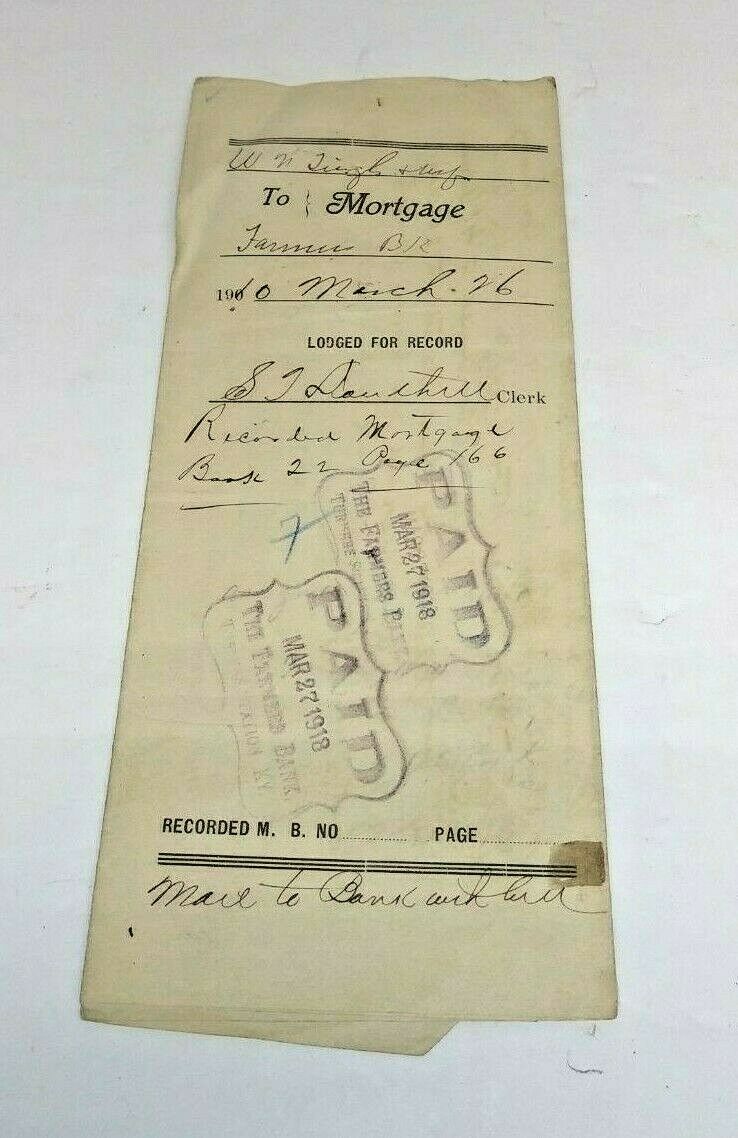 W N & wf
To Mortgage
Farmers Bk
19010 March. 26
LODGED FOR RECORD
S T Clerk
Recorded Mortgage
Book 22 Page 166
PAID
MAR 27 1918
THE FARMERS BANK
PAID
MAR 27 1918
THE FARMERS BANK
KY
RECORDED M. B. NO PAGE
Mail to Bank with bill